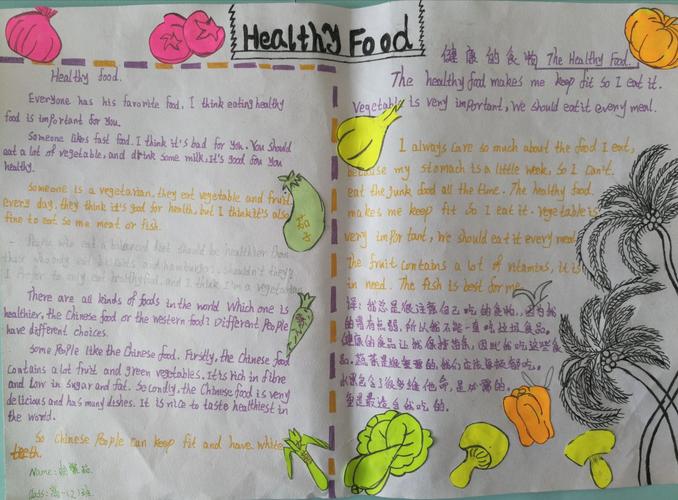 Healthy Food
Healthy food.
Everyone has his favorite food, I think eating healthy
food is important for you.
Someone likes fast food. I think it's bad for you. You should
eat a lot of vegetable, and drink some milk, It's good fou you
healthy.
Someone is a vegetarian, they eat vegetable and fruit
every day, they think it's good for health, but I think it's also
fine to eat so me meat or fish.
People who eat a balanced diet should be healthier than
those who only eat and hamburgers, shouldn't they?
I Prefer to only eat healthy food, and I think I'm a vegetarian
There are all kinds of foods in the world Which one is
healthier, the Chinese food or the western food? Different People
have different choices.
Some People like the Chinese food. Firstly, the Chinese food
Contains a lot fruit and green vegetables. It is rich in fibre
and low in sugar and fat. Secondly, the Chinese food is very
delicious and has many dishes. It is nice to taste healthiest in
the world.
So Chinese People can keep fit and have white
teeth.
Name:
茄子
健康的食物 The Healthy Food.
The healthy food makes me keep fit so I eat it.
Vegetable is very important, We should eat it every meal.
I always care so much about the food I eat,
because my stomach is a little week, so I can't
eat the junk food all the time. The healthy food
makes me keep fit So I eat it. Vegetable is
very important, We should eat it every meal
The fruit contains a lot of vitamins, it is
in need. The fish is best for me
译:我总是很注意自己吃的食物,因为我
的胃有点弱,所以我不能一直吃垃圾食品。
健康的食品让我保持健康,因此我吃这些食
品。蔬菜是很重要的,我们应该每顿都吃。
水果包含了很多维他命,是必需的。
鱼是最适合我吃的.